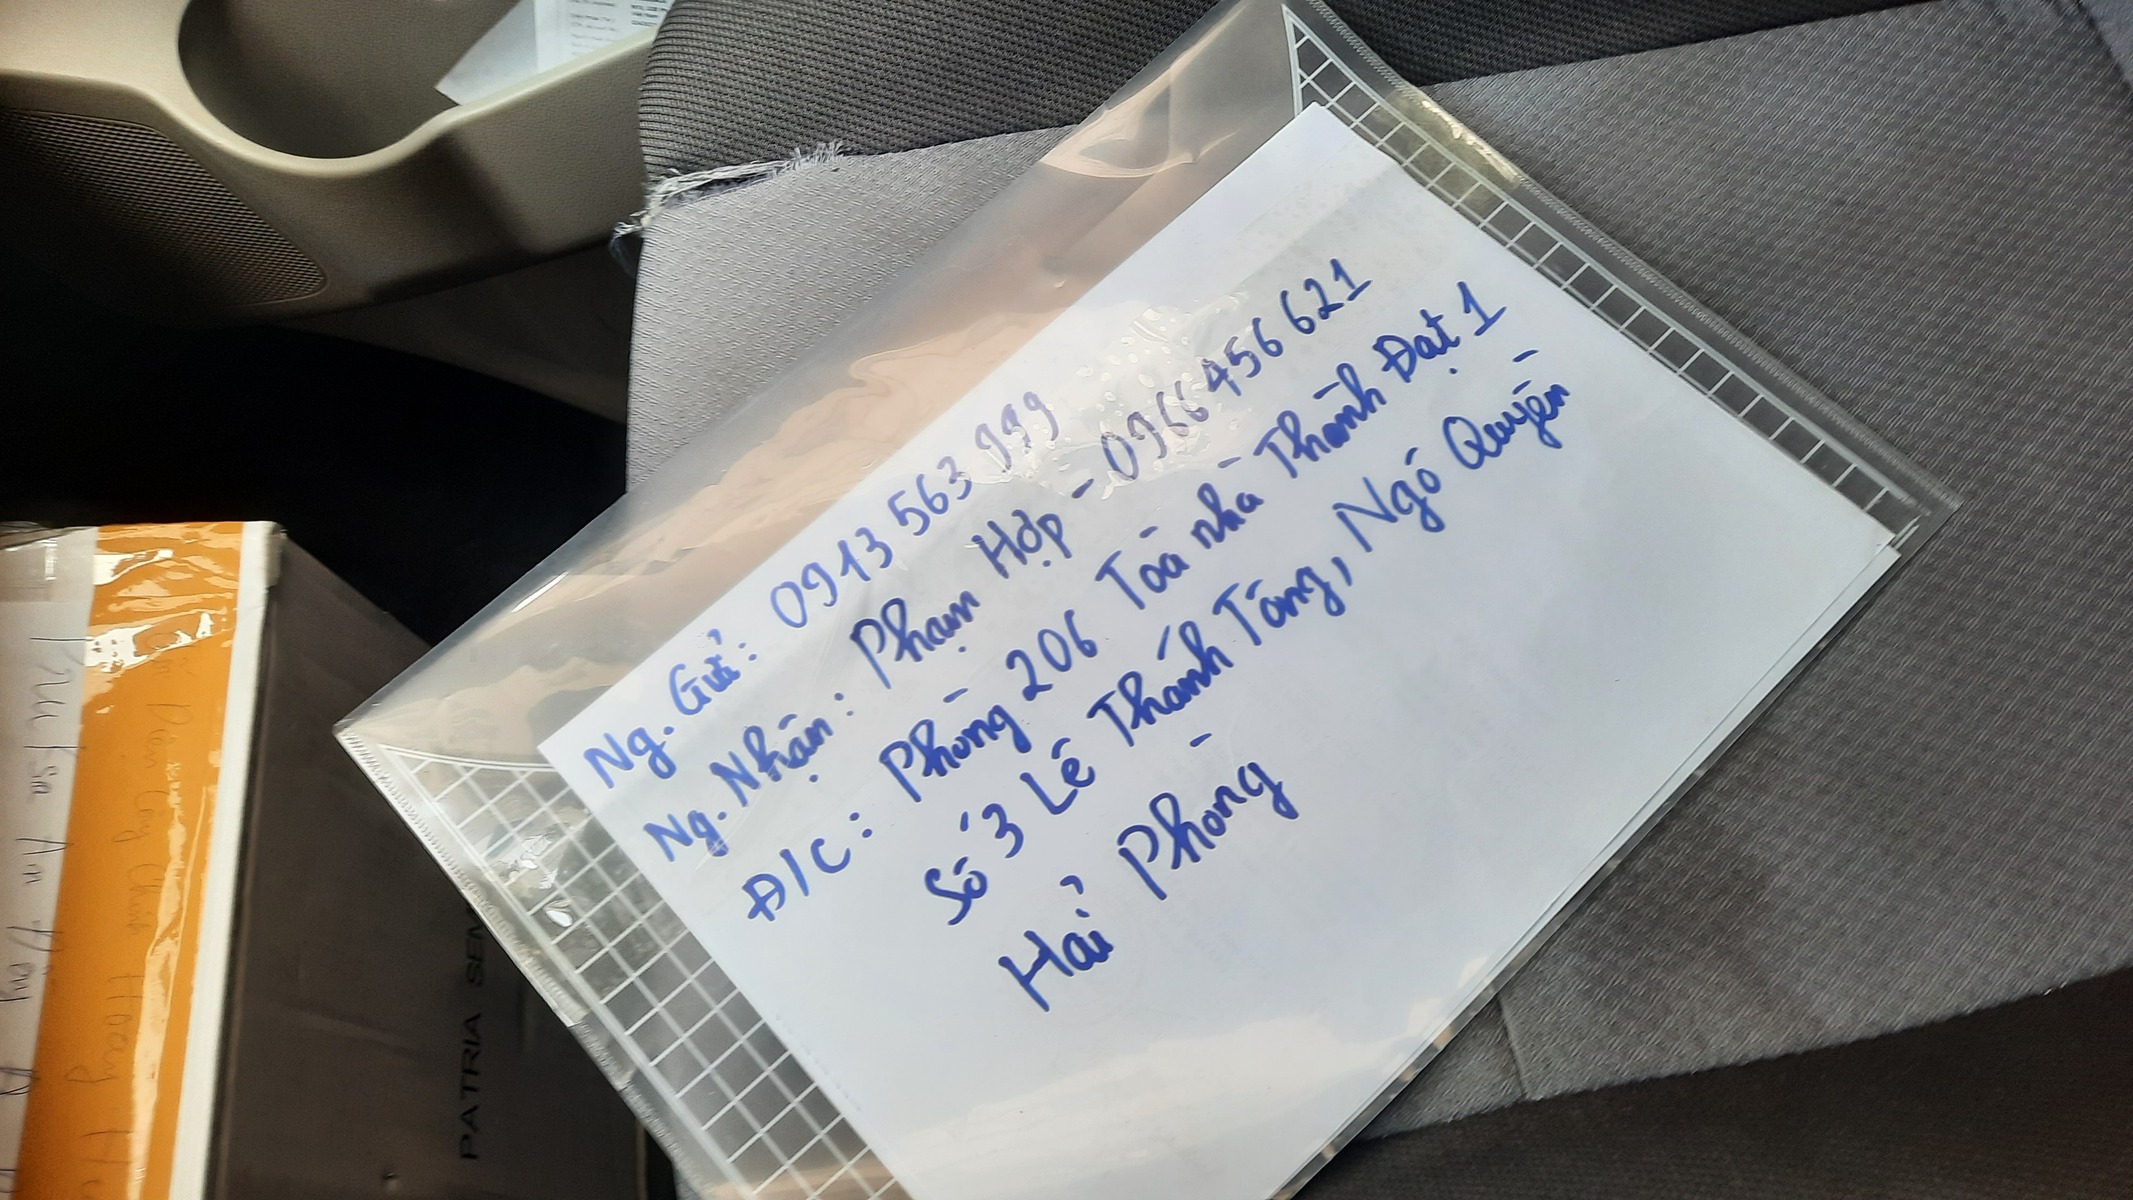 Ng. Gửi: 0913 563 999
Ng. Nhận: Phạm Hợp - 0966 456 621
Đ/C: Phòng 206 Toà nhà Thành Đạt 1
Số 3 Lê Thánh Tông, Ngô Quyền
Hải Phòng
PATRIA SEM